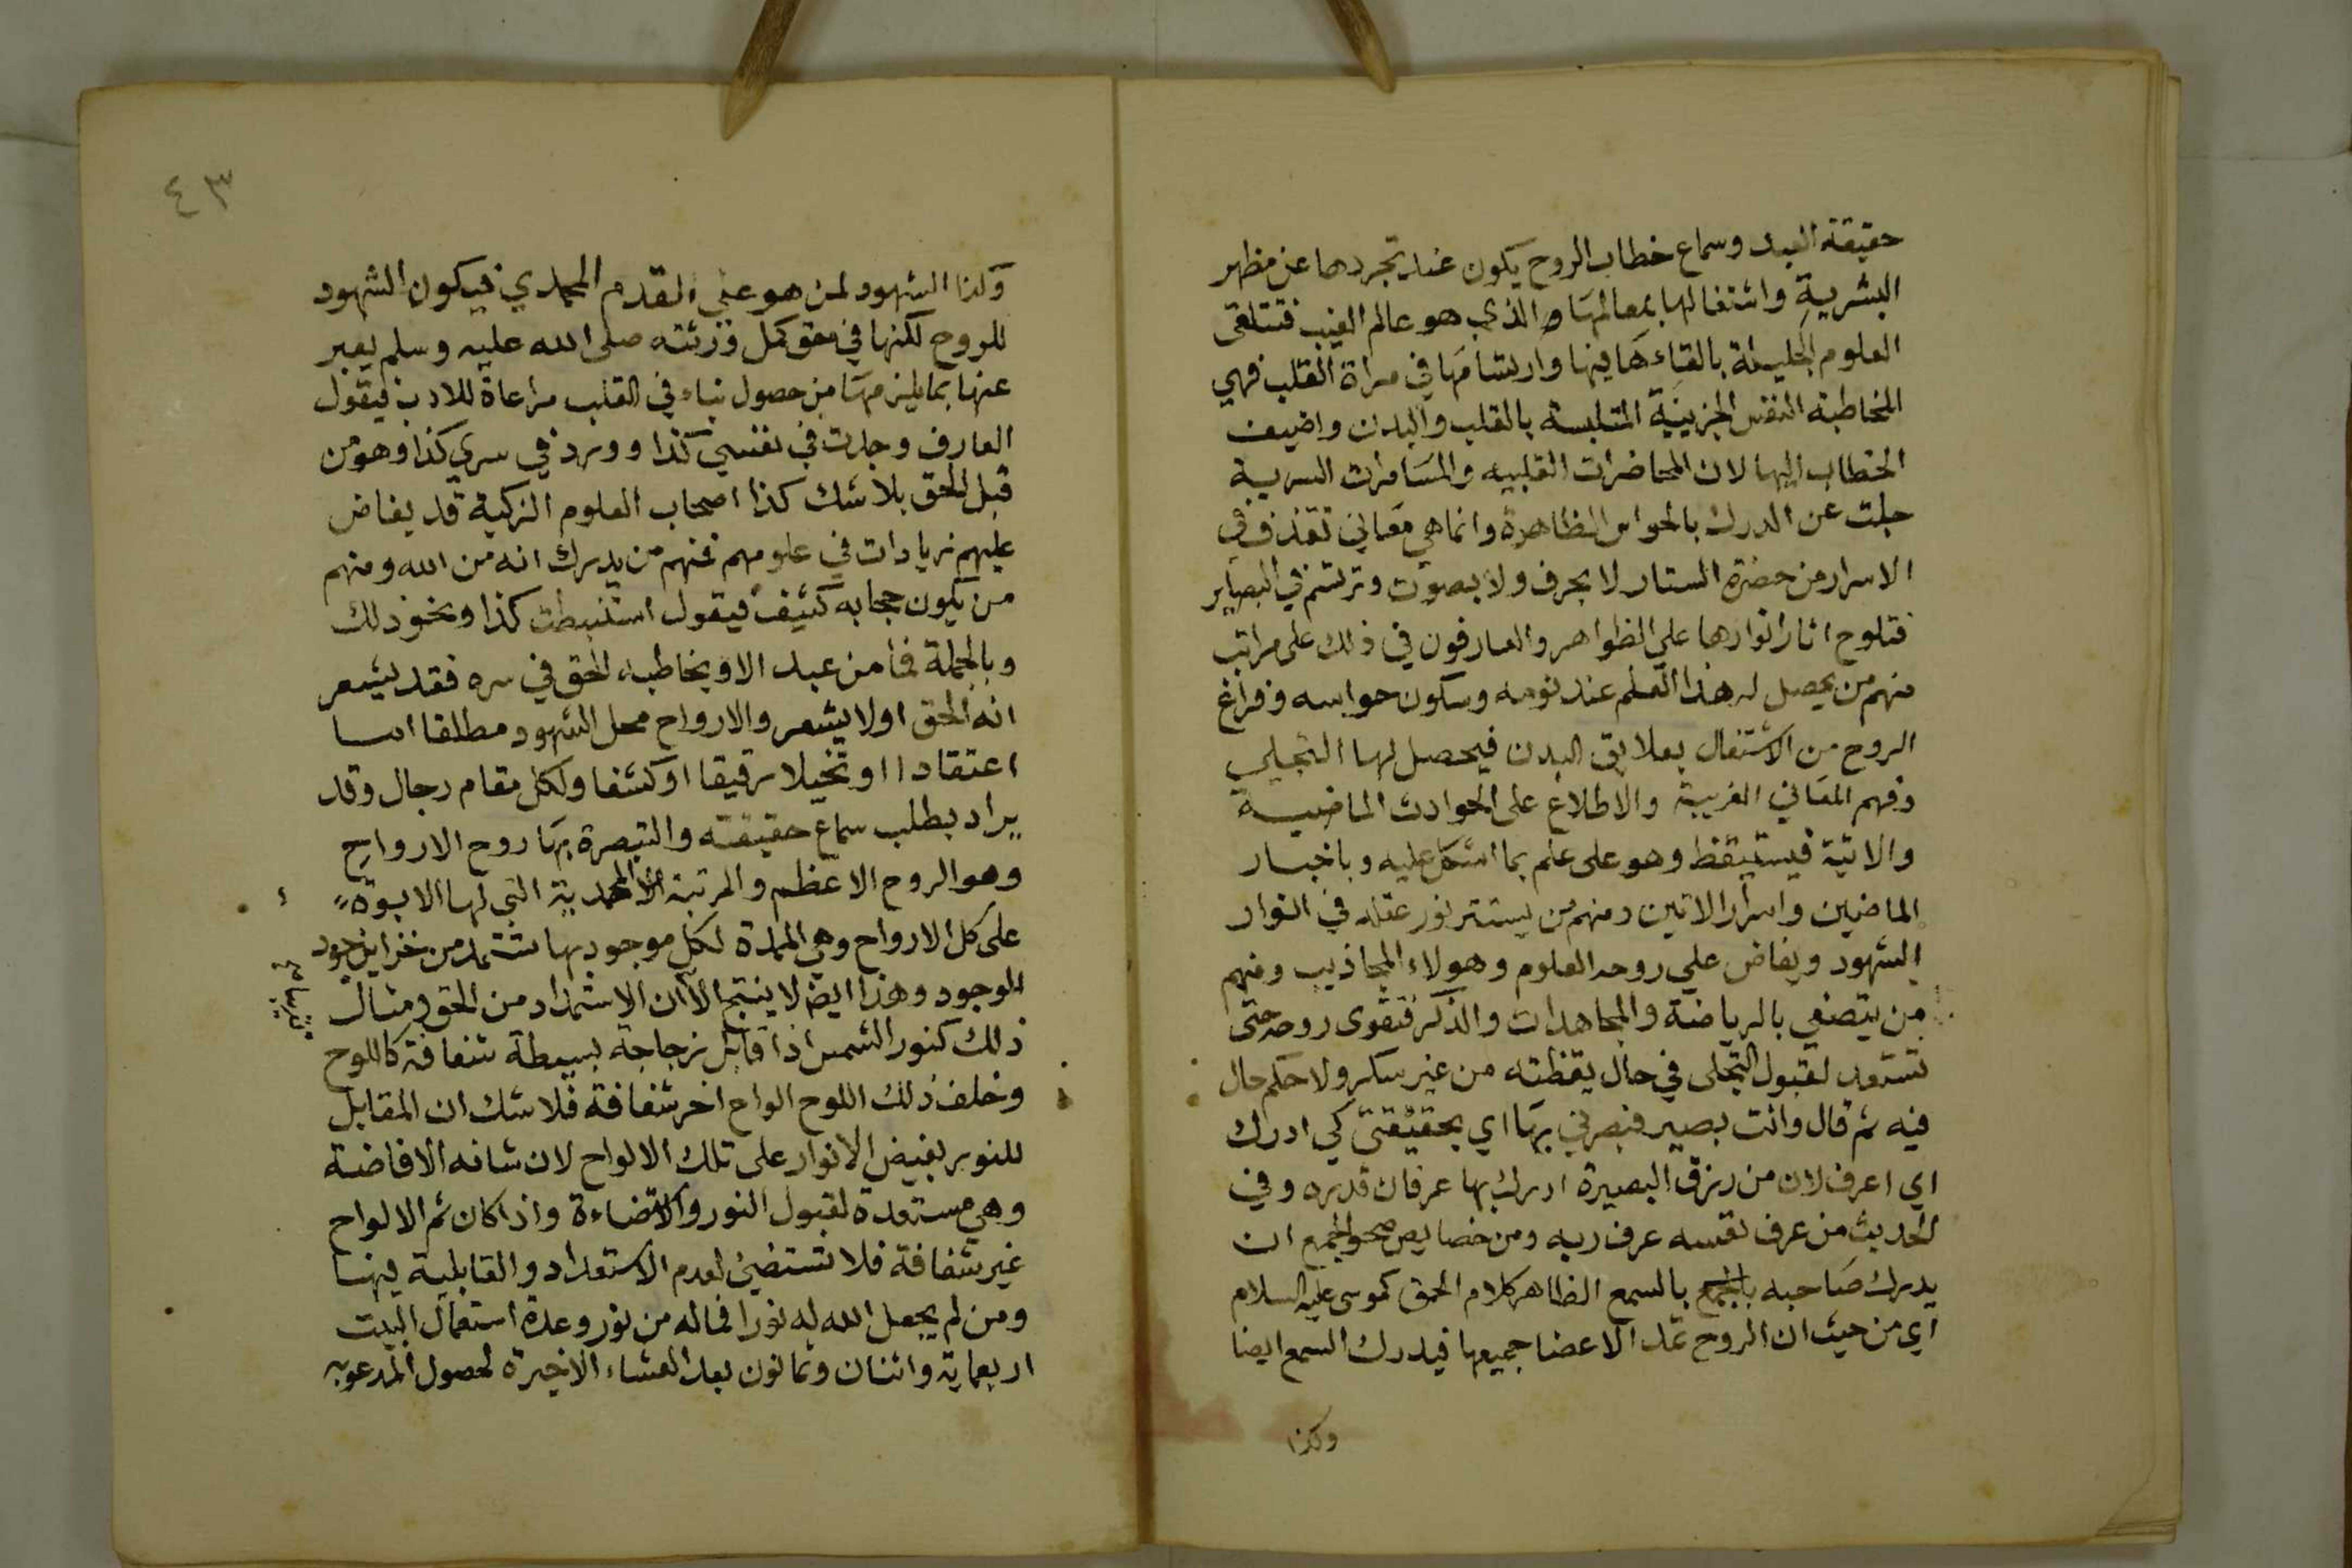 حقيقة العبد وسماع خطاب الروح يكون عند تجردها عن مظهر
البشرية واشتغالها بمعالمها الذي هو عالم الغيب فتتلقى
العلوم الجليلة بالقاءها فيها وارتسامها في مراة القلب فهي
المخاطبة النفس الجزيية المتلبسة بالقلب والبدن واضيف
الخطاب اليها لان المحاضرات القلبيه والمسامرات السرية
جلت عن الدرك بالحواس الظاهرة وانما هي معاني تقذف في
الاسرار من حضرة الستار لا بحرف ولا بصوت وترتسم في البصاير
فتلوح اثار انوارها على الظواهر والعارفون في ذلك على مراتب
منهم من يحصل له هذا العلم عند نومه وسكون حواسه وفراغ
الروح من الاشتغال بعلايق البدن فيحصل لها التجلي
وفهم المعاني الغريبة والاطلاع على الحوادث الماضية
والاتية فيستيقظ وهو على علم بما اشكل عليه وباخبار
الماضيين واسرار الاتين ومنهم من يستتر نور عقله في انوار
الشهود ويفاض على روحه العلوم وهولاء المجاذيب ومنهم
من يتصفى بالرياضة والمجاهدات والذكر فتقوى روحه حتى
تستعد لقبول التجلى في حال يقظته من غير سكر ولا حكم حال
فيه ثم قال وانت بصير فبصرني بها اي بحقيقتى كي ادرك
اي اعرف لان من رزق البصيرة ادرك بها عرفان قدره وفي
الحديث من عرف نفسه عرف ربه ومن خصايص صحو الجمع ان
يدرك صاحبه بالجمع بالسمع الظاهر كلام الحق كموسى عليه السلام
اي من حيث ان الروح تمد الاعضا جميعها فيدرك السمع ايضا
وكذا
٤٣
وكذا الشهود لمن هو على القدم المحمدي فيكون الشهود
للروح لكنها في حق كمل ورثته صلى الله عليه وسلم يعبر
عنها بما يلزمها من حصول نباء في القلب مراعاة للادب فيقول
العارف وجدت في نفسي كذا وورد في سري كذا وهو من
قبل الحق بلا شك كذا اصحاب العلوم الزكية قد يفاض
عليهم زيادات في علومهم فمنهم من يدرك انه من الله ومنهم
من يكون حجابه كثيف فيقول استنبطت كذا ونحو ذلك
وبالجملة فما من عبد الا ويخاطبه الحق في سره فقد يشعر
انه الحق اولا يشعر والارواح محل الشهود مطلقا اما
اعتقادا او تخيلا رقيقا او كشفا ولكل مقام رجال وقد
يراد بطلب سماع حقيقته والتبصرة بها روح الارواح
وهو الروح الاعظم والمرتبة المحمدية التي لها الابوة
على كل الارواح وهي الممدة لكل موجود بها تستمد من خزاين جود
الوجود وهذا ايضا لا ينتج الا ان الاستمداد من الحق ومثال
ذلك كنور الشمس اذا قابل زجاجة بسيطة شفافة كاللوح
وخلف ذلك اللوح الواح اخر شفافة فلا شك ان المقابل
للنور يفيض الانوار على تلك الالواح لان شانه الافاضة
وهي مستعدة لقبول النور والاستضاءة واذا كان ثم الالواح
غير شفافة فلا تستضئ لعدم الاستعداد والقابلية فيها
ومن لم يجعل الله له نورا فماله من نور وعدة استعمال البيت
اربعماية واثنان وثمانون بعد العشاء الاخيرة لحصول المدعو به